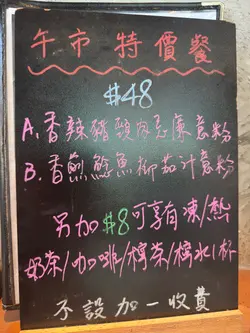 午市特價餐
$48
A. 香辣豬頸肉忌廉意粉
B. 香煎鯰魚柳茄汁意粉
另加$8可享有凍/熱
奶茶/咖啡/檸茶/檸水1杯
不設加一收費